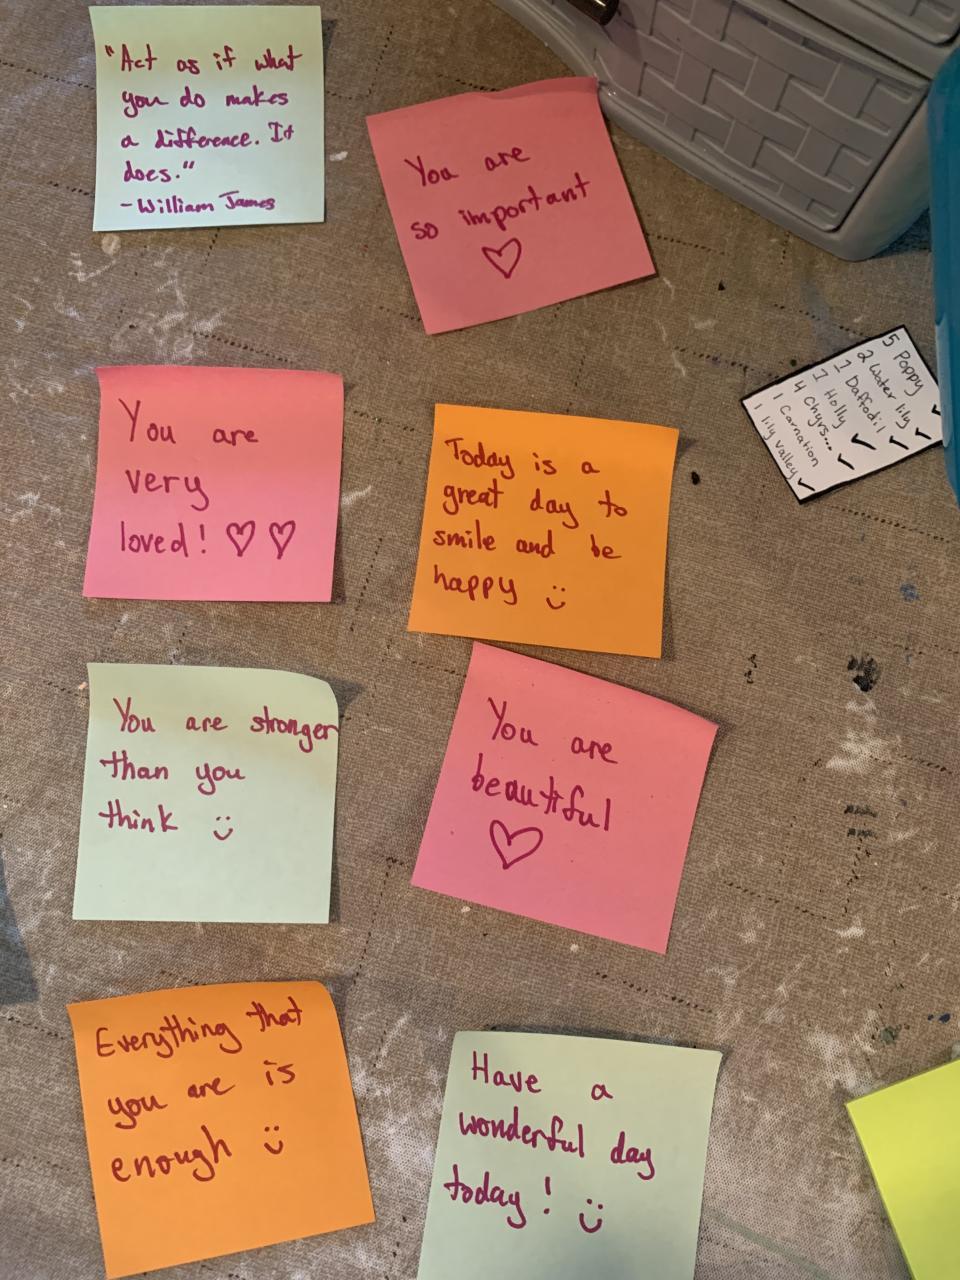 "Act as if what
you do makes
a difference. It
does."
- William James
You are
so important
♡
You are
very
loved! ♡ ♡
Today is a
great day to
smile and be
happy :)
5 Poppy
2 Water lily ✓
1 Daffodil ✓
1 Holly ✓
4 Chyrs... ✓
1 Carnation
1 lily valley ✓
You are stronger
than you
think :)
You are
beautiful
♡
Everything that
you are is
enough :)
Have a
wonderful day
today! :)